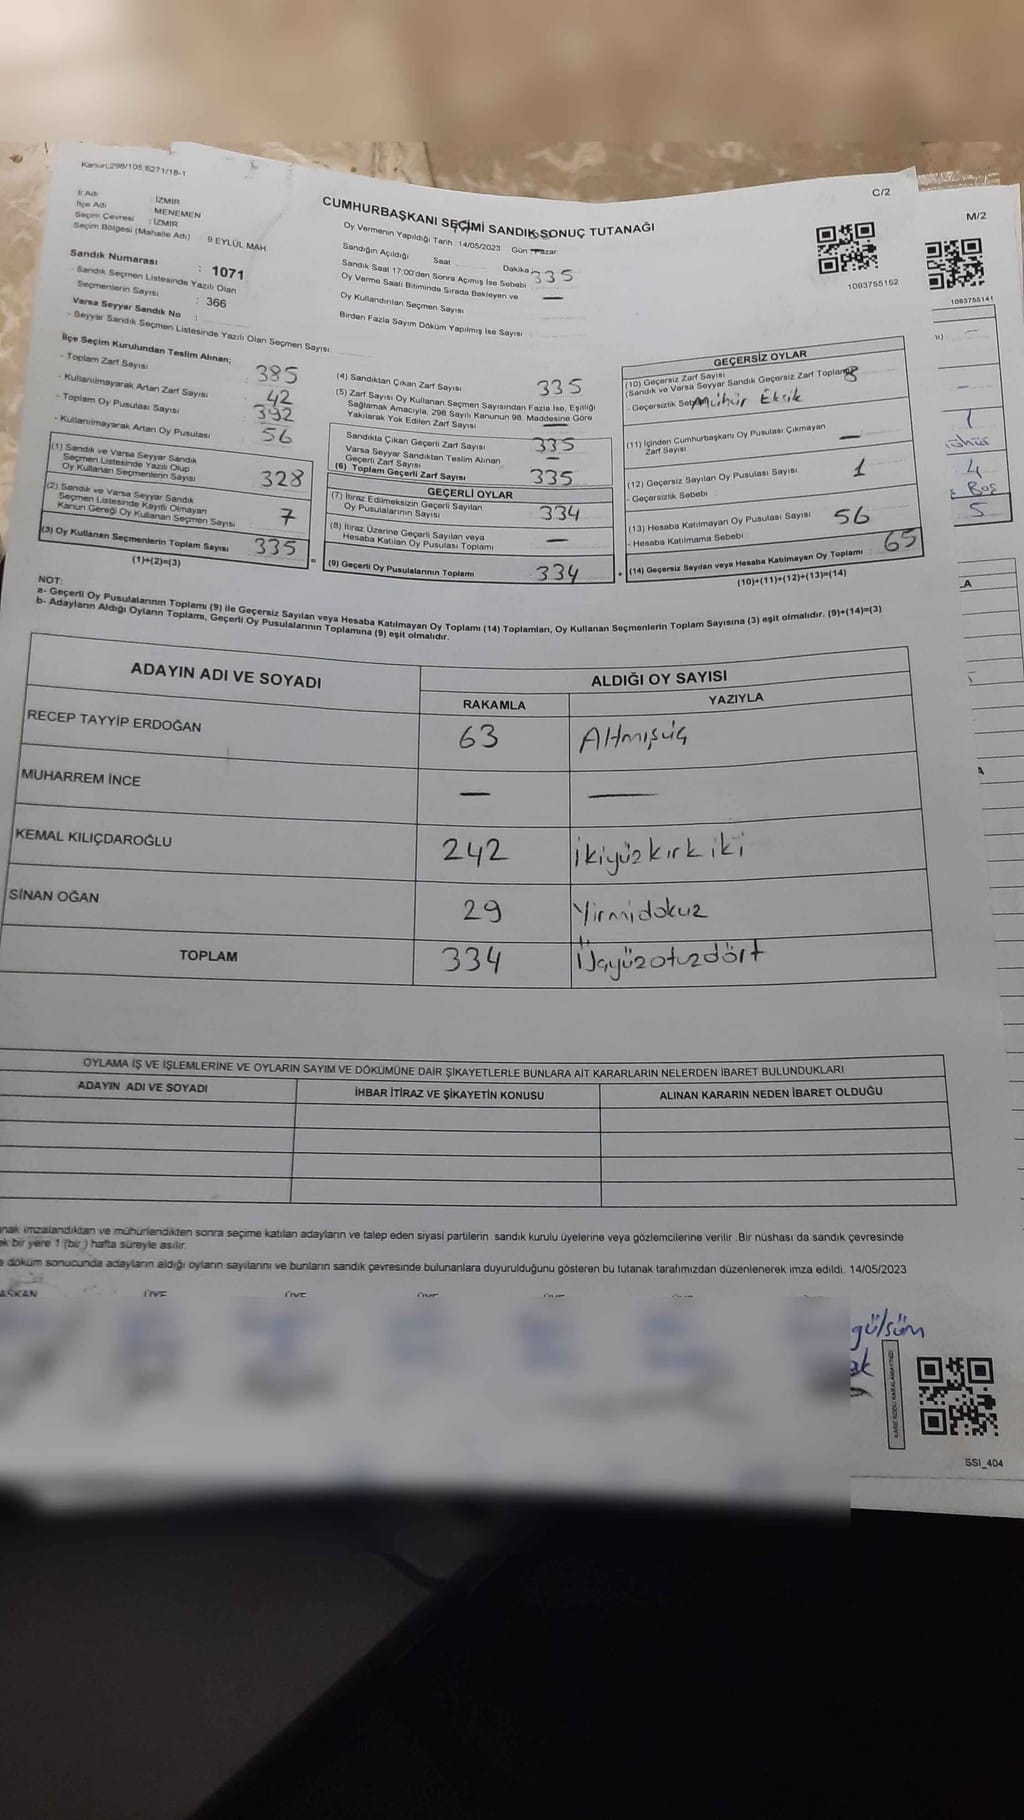 Kanun:298/105,6271/18-1
C/2
M/2
İl Adı : İZMİR
İlçe Adı : MENEMEN
Seçim Çevresi : İZMİR
Seçim Bölgesi (Mahalle Adı) : 9 EYLÜL MAH
Sandık Numarası : 1071
- Sandık Seçmen Listesinde Yazılı Olan
Seçmenlerin Sayısı : 366
Varsa Seyyar Sandık No :
- Seyyar Sandık Seçmen Listesinde Yazılı Olan Seçmen Sayısı
CUMHURBAŞKANI SEÇİMİ SANDIK SONUÇ TUTANAĞI
Oy Vermenin Yapıldığı Tarih : 14/05/2023 Gün : Pazar
Sandığın Açıldığı Saat Dakika
Sandık Saat 17:00'den Sonra Açımış İse Sebebi 335
Oy Verme Saati Bitiminde Sırada Bekleyen ve
Oy Kullandırılan Seçmen Sayısı —
Birden Fazla Sayım Döküm Yapılmış İse Sayısı
1093755152
1083755141
İlçe Seçim Kurulundan Teslim Alınan;
- Toplam Zarf Sayısı 385
- Kullanılmayarak Artan Zarf Sayısı 42
- Toplam Oy Pusulası Sayısı 392
- Kullanılmayarak Artan Oy Pusulası 56
(1) Sandık ve Varsa Seyyar Sandık
Seçmen Listesinde Yazılı Olup
Oy Kullanan Seçmenlerin Sayısı 328
(2) Sandık ve Varsa Seyyar Sandık
Seçmen Listesinde Kayıtlı Olmayan
Kanun Gereği Oy Kullanan Seçmen Sayısı 7
(3) Oy Kullanan Seçmenlerin Toplam Sayısı 335
(1)+(2)=(3)
(4) Sandıktan Çıkan Zarf Sayısı 335
(5) Zarf Sayısı Oy Kullanan Seçmen Sayısından Fazla İse, Eşitliği
Sağlamak Amacıyla, 298 Sayılı Kanunun 98. Maddesine Göre
Yakılarak Yok Edilen Zarf Sayısı —
Sandıkta Çıkan Geçerli Zarf Sayısı 335
Varsa Seyyar Sandıktan Teslim Alınan
Geçerli Zarf Sayısı —
(6) Toplam Geçerli Zarf Sayısı 335
GEÇERLİ OYLAR
(7) İtiraz Edilmeksizin Geçerli Sayılan
Oy Pusulalarının Sayısı 334
(8) İtiraz Üzerine Geçerli Sayılan veya
Hesaba Katılan Oy Pusulası Toplamı —
(9) Geçerli Oy Pusulalarının Toplamı 334
GEÇERSİZ OYLAR
(10) Geçersiz Zarf Sayısı
(Sandık ve Varsa Seyyar Sandık Geçersiz Zarf Toplamı) 8
- Geçersizlik Sebebi Mühür Eksik
(11) İçinden Cumhurbaşkanı Oy Pusulası Çıkmayan
Zarf Sayısı —
(12) Geçersiz Sayılan Oy Pusulası Sayısı 1
- Geçersizlik Sebebi
(13) Hesaba Katılmayan Oy Pusulası Sayısı 56
- Hesaba Katılmama Sebebi
(14) Geçersiz Sayılan veya Hesaba Katılmayan Oy Toplamı 65
(10)+(11)+(12)+(13)=(14)
1
4
Boş
5
NOT:
a- Geçerli Oy Pusulalarının Toplamı (9) ile Geçersiz Sayılan veya Hesaba Katılmayan Oy Toplamı (14) Toplamları, Oy Kullanan Seçmenlerin Toplam Sayısına (3) eşit olmalıdır. (9)+(14)=(3)
b- Adayların Aldığı Oyların Toplamı, Geçerli Oy Pusulalarının Toplamına (9) eşit olmalıdır.
ADAYIN ADI VE SOYADI
ALDIĞI OY SAYISI
RAKAMLA YAZIYLA
RECEP TAYYİP ERDOĞAN 63 Altmışüç
MUHARREM İNCE — —
KEMAL KILIÇDAROĞLU 242 İkiyüzkırkiki
SİNAN OĞAN 29 Yirmidokuz
TOPLAM 334 Üçyüzotuzdört
OYLAMA İŞ VE İŞLEMLERİNE VE OYLARIN SAYIM VE DÖKÜMÜNE DAİR ŞİKAYETLERLE BUNLARA AİT KARARLARIN NELERDEN İBARET BULUNDUKLARI
ADAYIN ADI VE SOYADI
İHBAR İTİRAZ VE ŞİKAYETİN KONUSU
ALINAN KARARIN NEDEN İBARET OLDUĞU
nak imzalandıktan ve mühürlendikten sonra seçime katılan adayların ve talep eden siyasi partilerin sandık kurulu üyelerine veya gözlemcilerine verilir .Bir nüshası da sandık çevresinde
ek bir yere 1 (bir ) hafta süreyle asılır.
e döküm sonucunda adayların aldığı oyların sayılarını ve bunların sandık çevresinde bulunanlara duyurulduğunu gösteren bu tutanak tarafımızdan düzenlenerek imza edildi. 14/05/2023
AŞKAN ÜYE ÜYE ÜYE ÜYE ÜYE
gülsüm
ak
KARE KODU KARALAMAYINIZ!
SSI_404